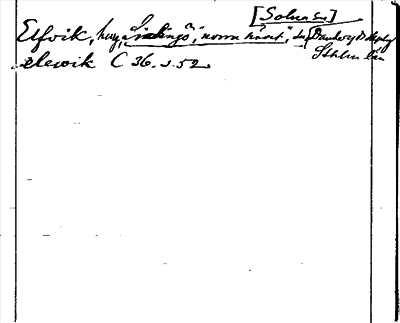 [Solna sn]
Elfvik, hmg, Lidingö, "norra kvart", Danderyds skplg
Sthlms län
elewik C 36. s. 52